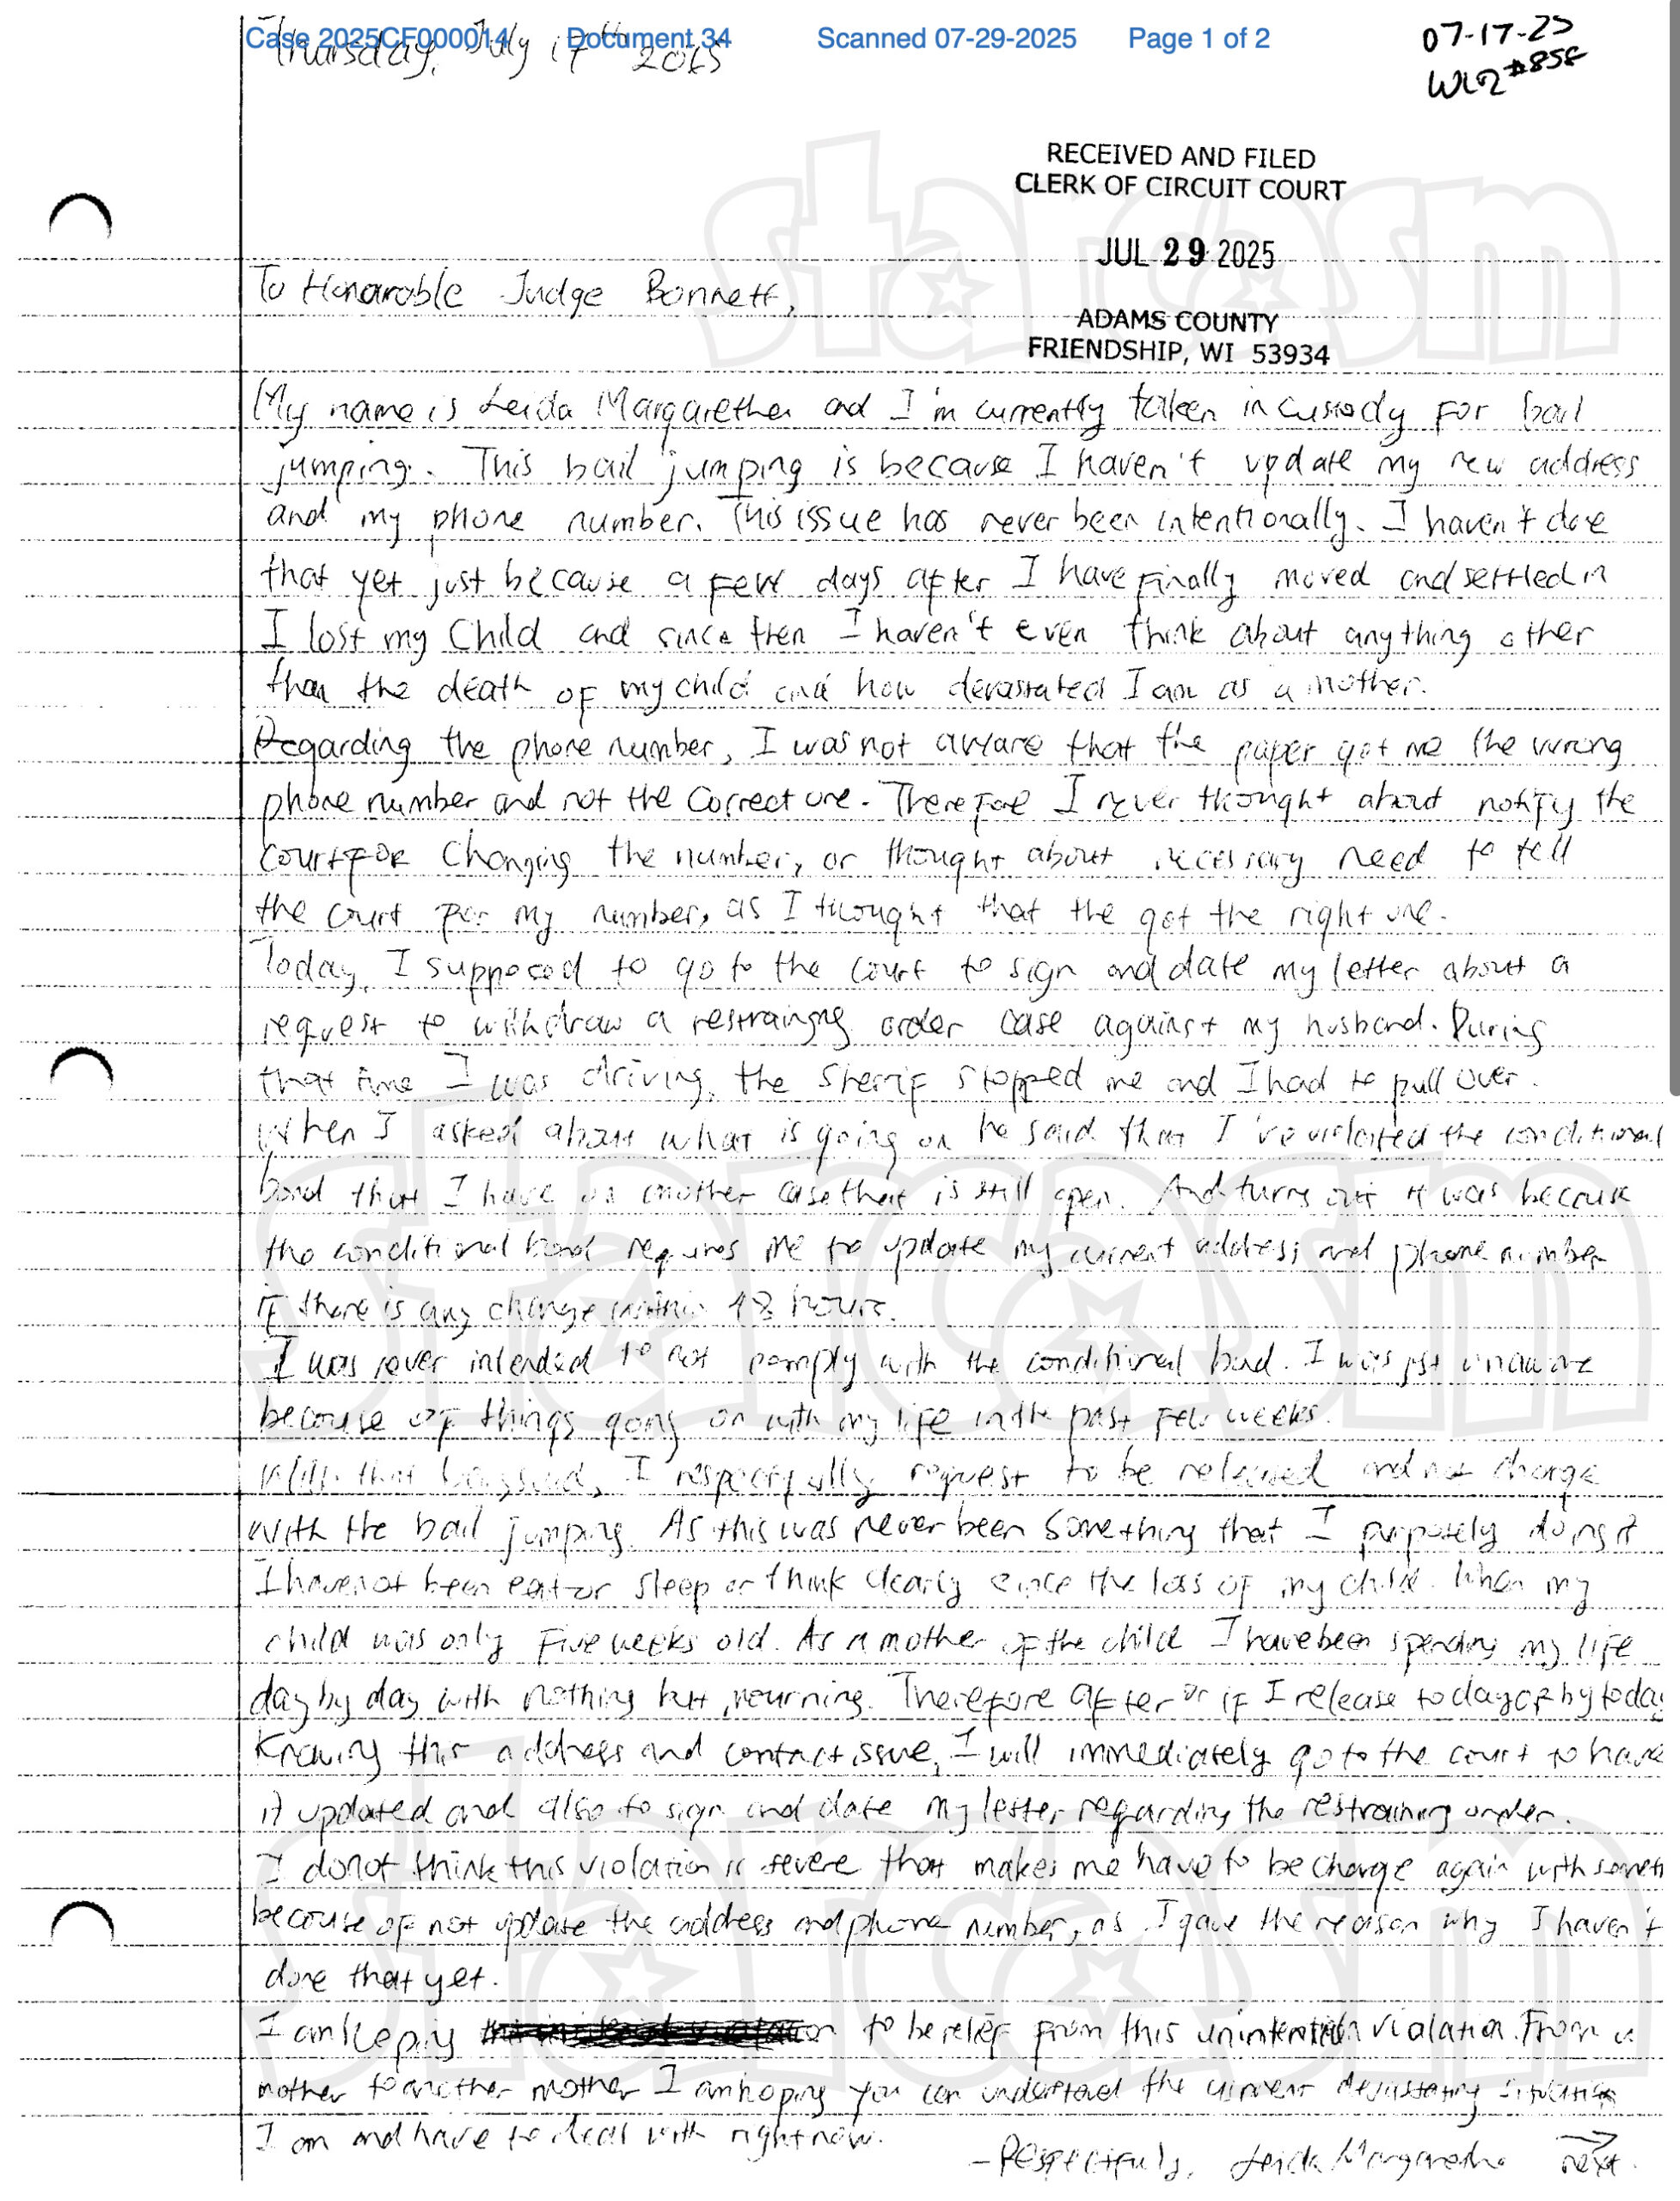 Case 2025CF000014 Document 34 Scanned 07-29-2025 Page 1 of 2
Thursday, July 17th 2025
07-17-25
#858
RECEIVED AND FILED
CLERK OF CIRCUIT COURT
JUL 29 2025
ADAMS COUNTY
FRIENDSHIP, WI 53934
starcasm
To Honarable Judge Bonnett,
My name is Leida Margaretha and I'm currently taken in custody for bail
jumping. This bail jumping is because I haven't update my new address
and my phone number. This issue has never been intentionally. I haven't done
that yet just because a few days after I have finally moved and settled in
I lost my child and since then I haven't even think about anything other
than the death of my child and how devastated I am as a mother.
Regarding the phone number, I was not aware that the paper got me the wrong
phone number and not the correct one. Therefore I never thought about notify the
court for changing the number, or thought about necessary need to tell
the court for my number, as I thought that the got the right one.
Today, I supposed to go to the court to sign and date my letter about a
request to withdraw a restraining order case against my husband. During
that time I was driving, the Sherrif stopped me and I had to pull over.
When I asked about what is going on he said that I 've violated the conditional
bond that I have on another case that is still open. And turns out it was because
the conditional bond requires me to update my current address and phone number
if there is any change within 48 hours.
I was never intended to not comply with the conditional bond. I was just unaware
because of things going on with my life in the past few weeks.
With that being said, I respectfully request to be released and not charge
with the bail jumping. As this was never been something that I purposely doing it
I have not been eat or sleep or think clearly since the loss of my child. When my
child was only five weeks old. As a mother of the child I have been spending my life
day by day with nothing but mourning. Therefore after or if I release today or by today
Knowing this address and contact issue, I will immediately go to the court to have
it updated and also to sign and date my letter regarding the restraining order.
I do not think this violation is severe that makes me have to be charge again with someth
because of not update the address and phone number, as I gave the reason why I haven't
done that yet.
I am to be relief from this unintention violation. From a
mother to another mother I am hoping you can understand the current devastating situation
I am and have to deal with right now.
- Respectfully, Leida Margaretha next
starcasm
starcasm